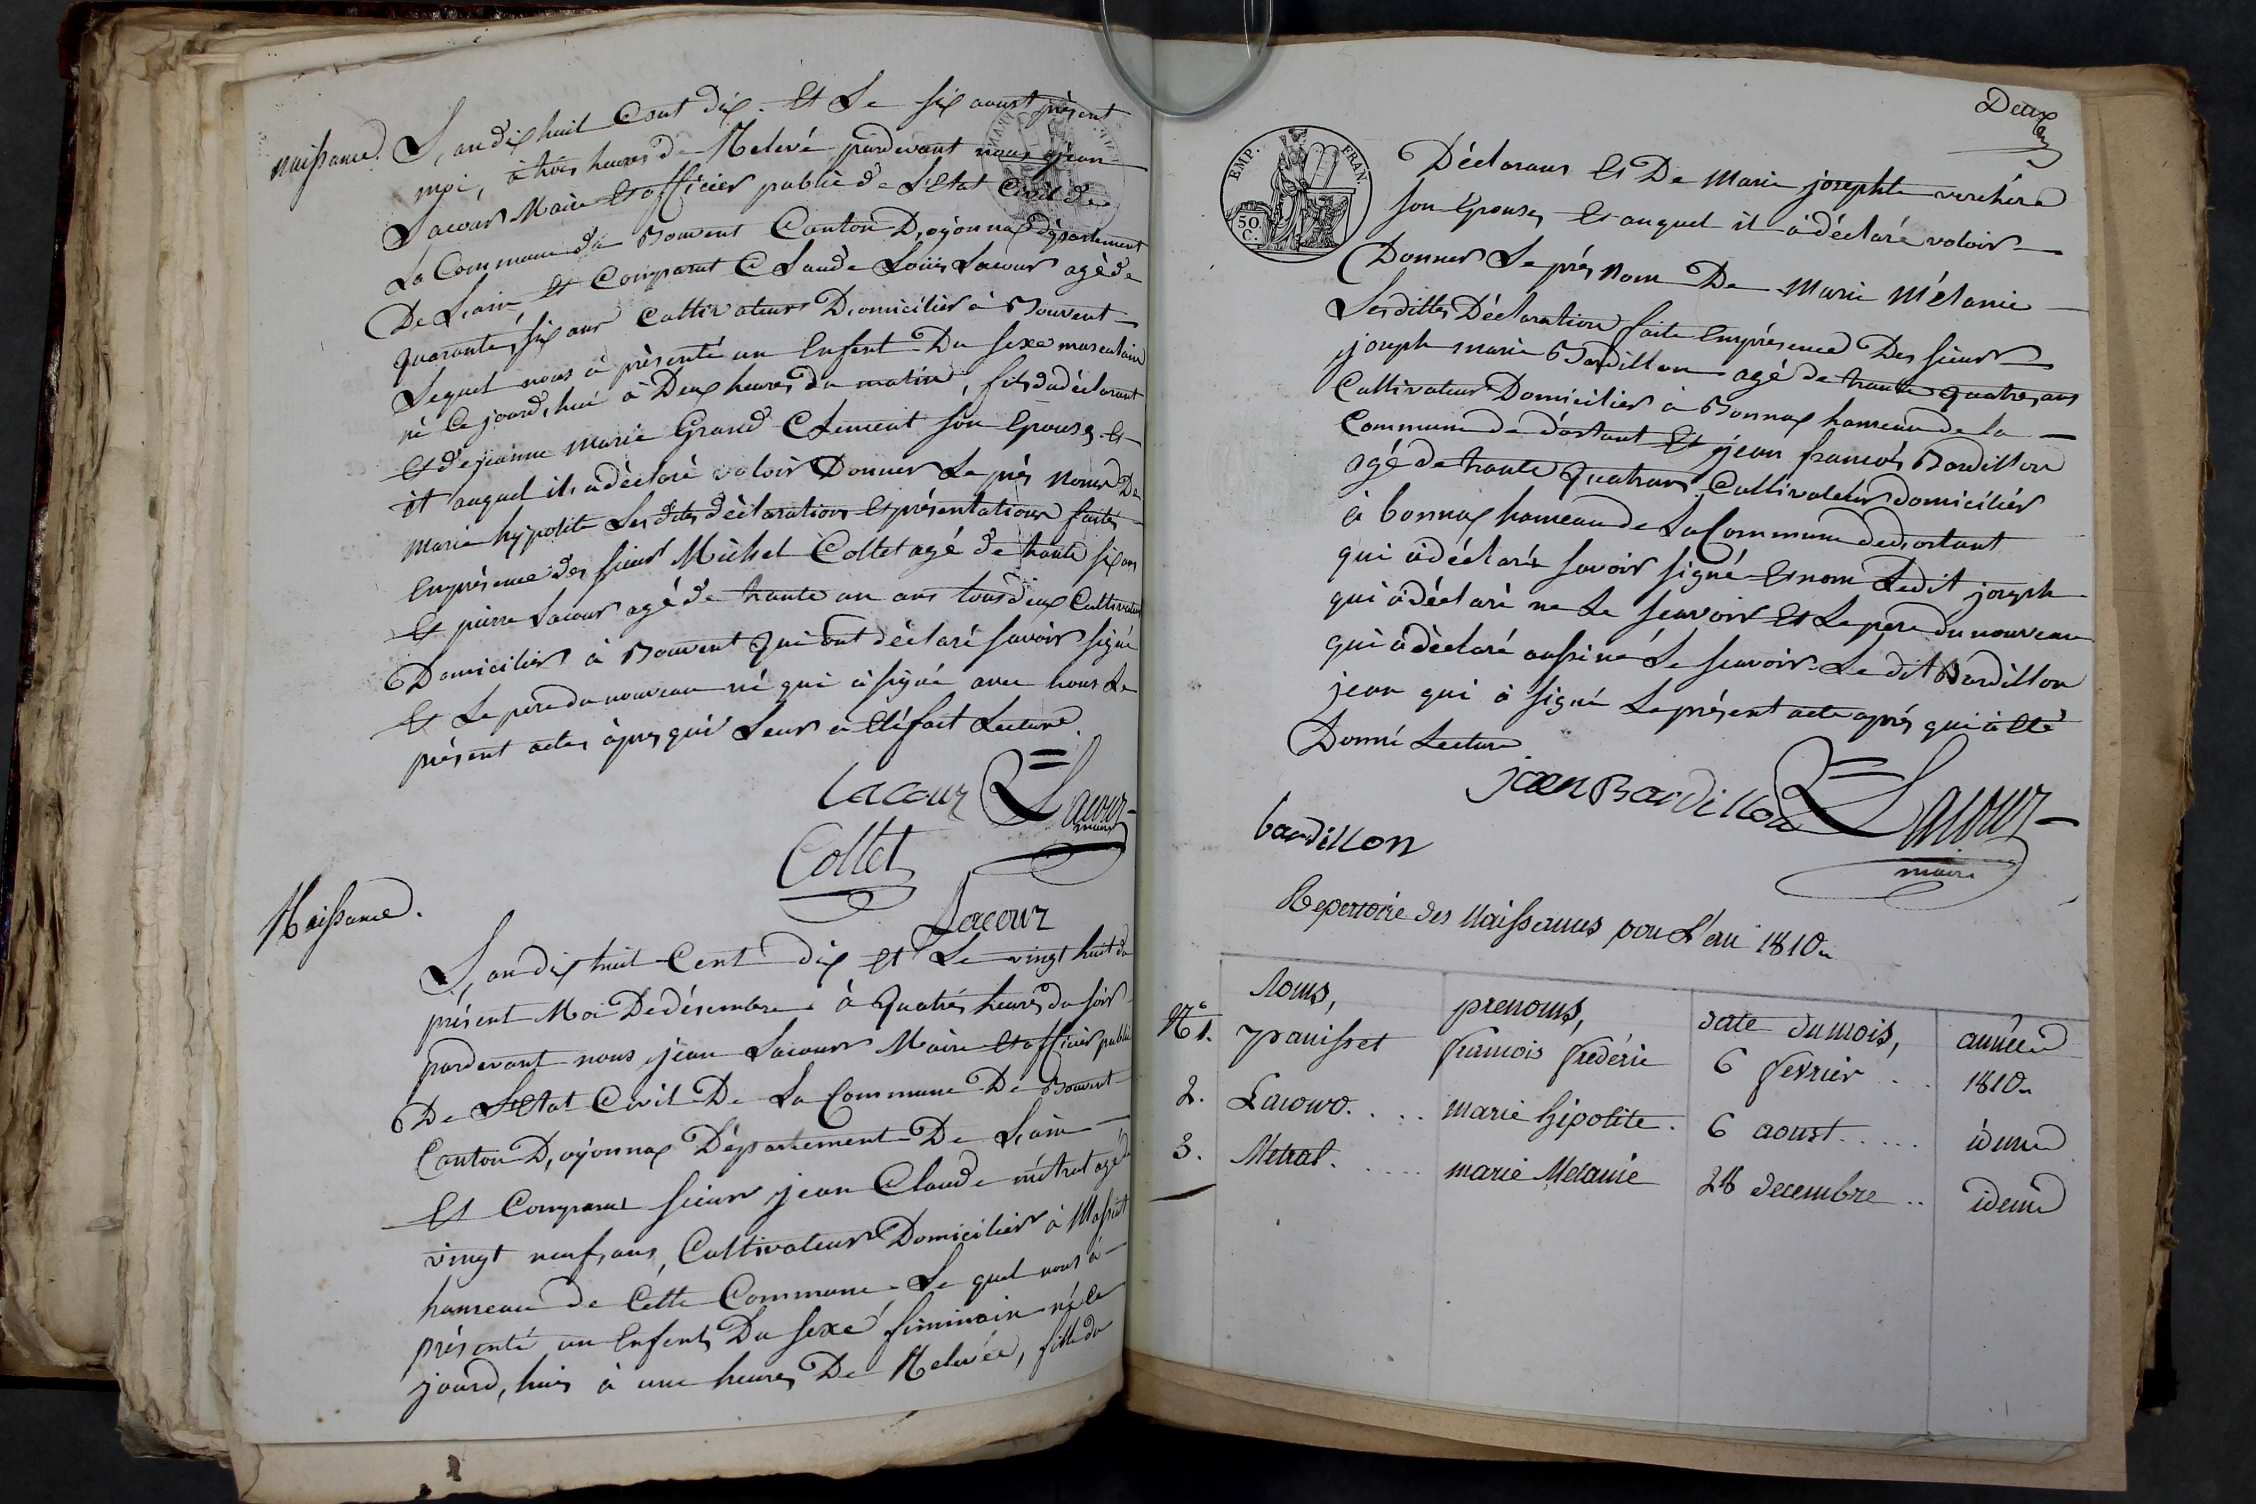 naissance. L,an dix huit Cent dix. Et Le six aoust présent
moi, à trois heures de Relevé pardevant nous jean
Lacour Maire Et officier public de L'Etat Civil de
La Commune de Bouvent Canton D,oyonnax département
De L,ain, Et Comparut Claude Loüis Lacour agé de
quarante, six ans Cultivateur Domicilier à Bouvent
Lequel nous à présenté un Enfent Du sexe masculain
né Ce jourd,hui à Deux heures du matin, fils du déclarant
Et de jeanne Marie Grand Clément son Epouse, Et
it auquel il, a déclaré voloir Donner Le prés Nom De
Marie hypolite Les dittes déclarations Et présentations faites
Enprésence des sieur Michel Collet agé de trante six ans
Et pierre Lacour agé de trante un ans tous deux Cultivateur
Domicilier à Bouvent qui ont déclaré savoir signé
Et Le pere du nouveau né qui à signé avec nous Le
présent actes àpres qui Leur a Eté fait Lecture.
Lacour Lacour
maire
Collet
Lacour
Naissance.
L,an dix huit Cent dix Et Le vingt huit du
présent Moi De désembre à quatrés heures du soir
pardevant nous jean Lacour Maire Et officier public
De L'Etat Civil De La Commune De Bouvent
Canton D,oyonnax Département De L,ain
Et Comparut sieur jean Claude métrat agé de
vingt neuf, ans, Cultivateur Domicilier à Massiat
hameau de Cette Commune. Le quel nous à
présenté un Enfent Du sexe féminain né le
jourd,huis à une heures De Relevée, fille du
Deux
EMP. FRAN.
50 C.
Déclarans Et De Marie josephte verchére
son Epouse, Et auquel il à déclaré voloir
Donner Le prés Nom De Marie Mélanie
Lesdittes Déclaration faite Enprésence Des sieur
joseph marie Bardillon agé de trante quatres, ans
Cultivateur Domicilier à Bonnax hameau de la
Commune de dortant Et jean francois Bardillon
agé de trante quatrans Cultivateur domicilier
à bonnax hameau de La Commune de dortant
qui à déclaré savoir signé Et nom Ledit joseph
qui à déclaré ne Le scavoir Et Le pere du nouveau
qui à déclaré aussi né Le scavoir. Le dit Bardillon
jean qui à signé Le présent acte aprés qui à Eté
Donné Lecture
jean Bardillon Lacour
maire
bardillon
Repertoire des Naissances pour L'an 1810.
Noms, prenoms, date du mois, année
N° 1. panisset francois frédéric 6 fevrier . . 1810.
2. Lacour. . . . marie hipolite. 6 aoust . . . . . idem
3. Métrat. . . . . . marie Melanie 28 decembre . . idem